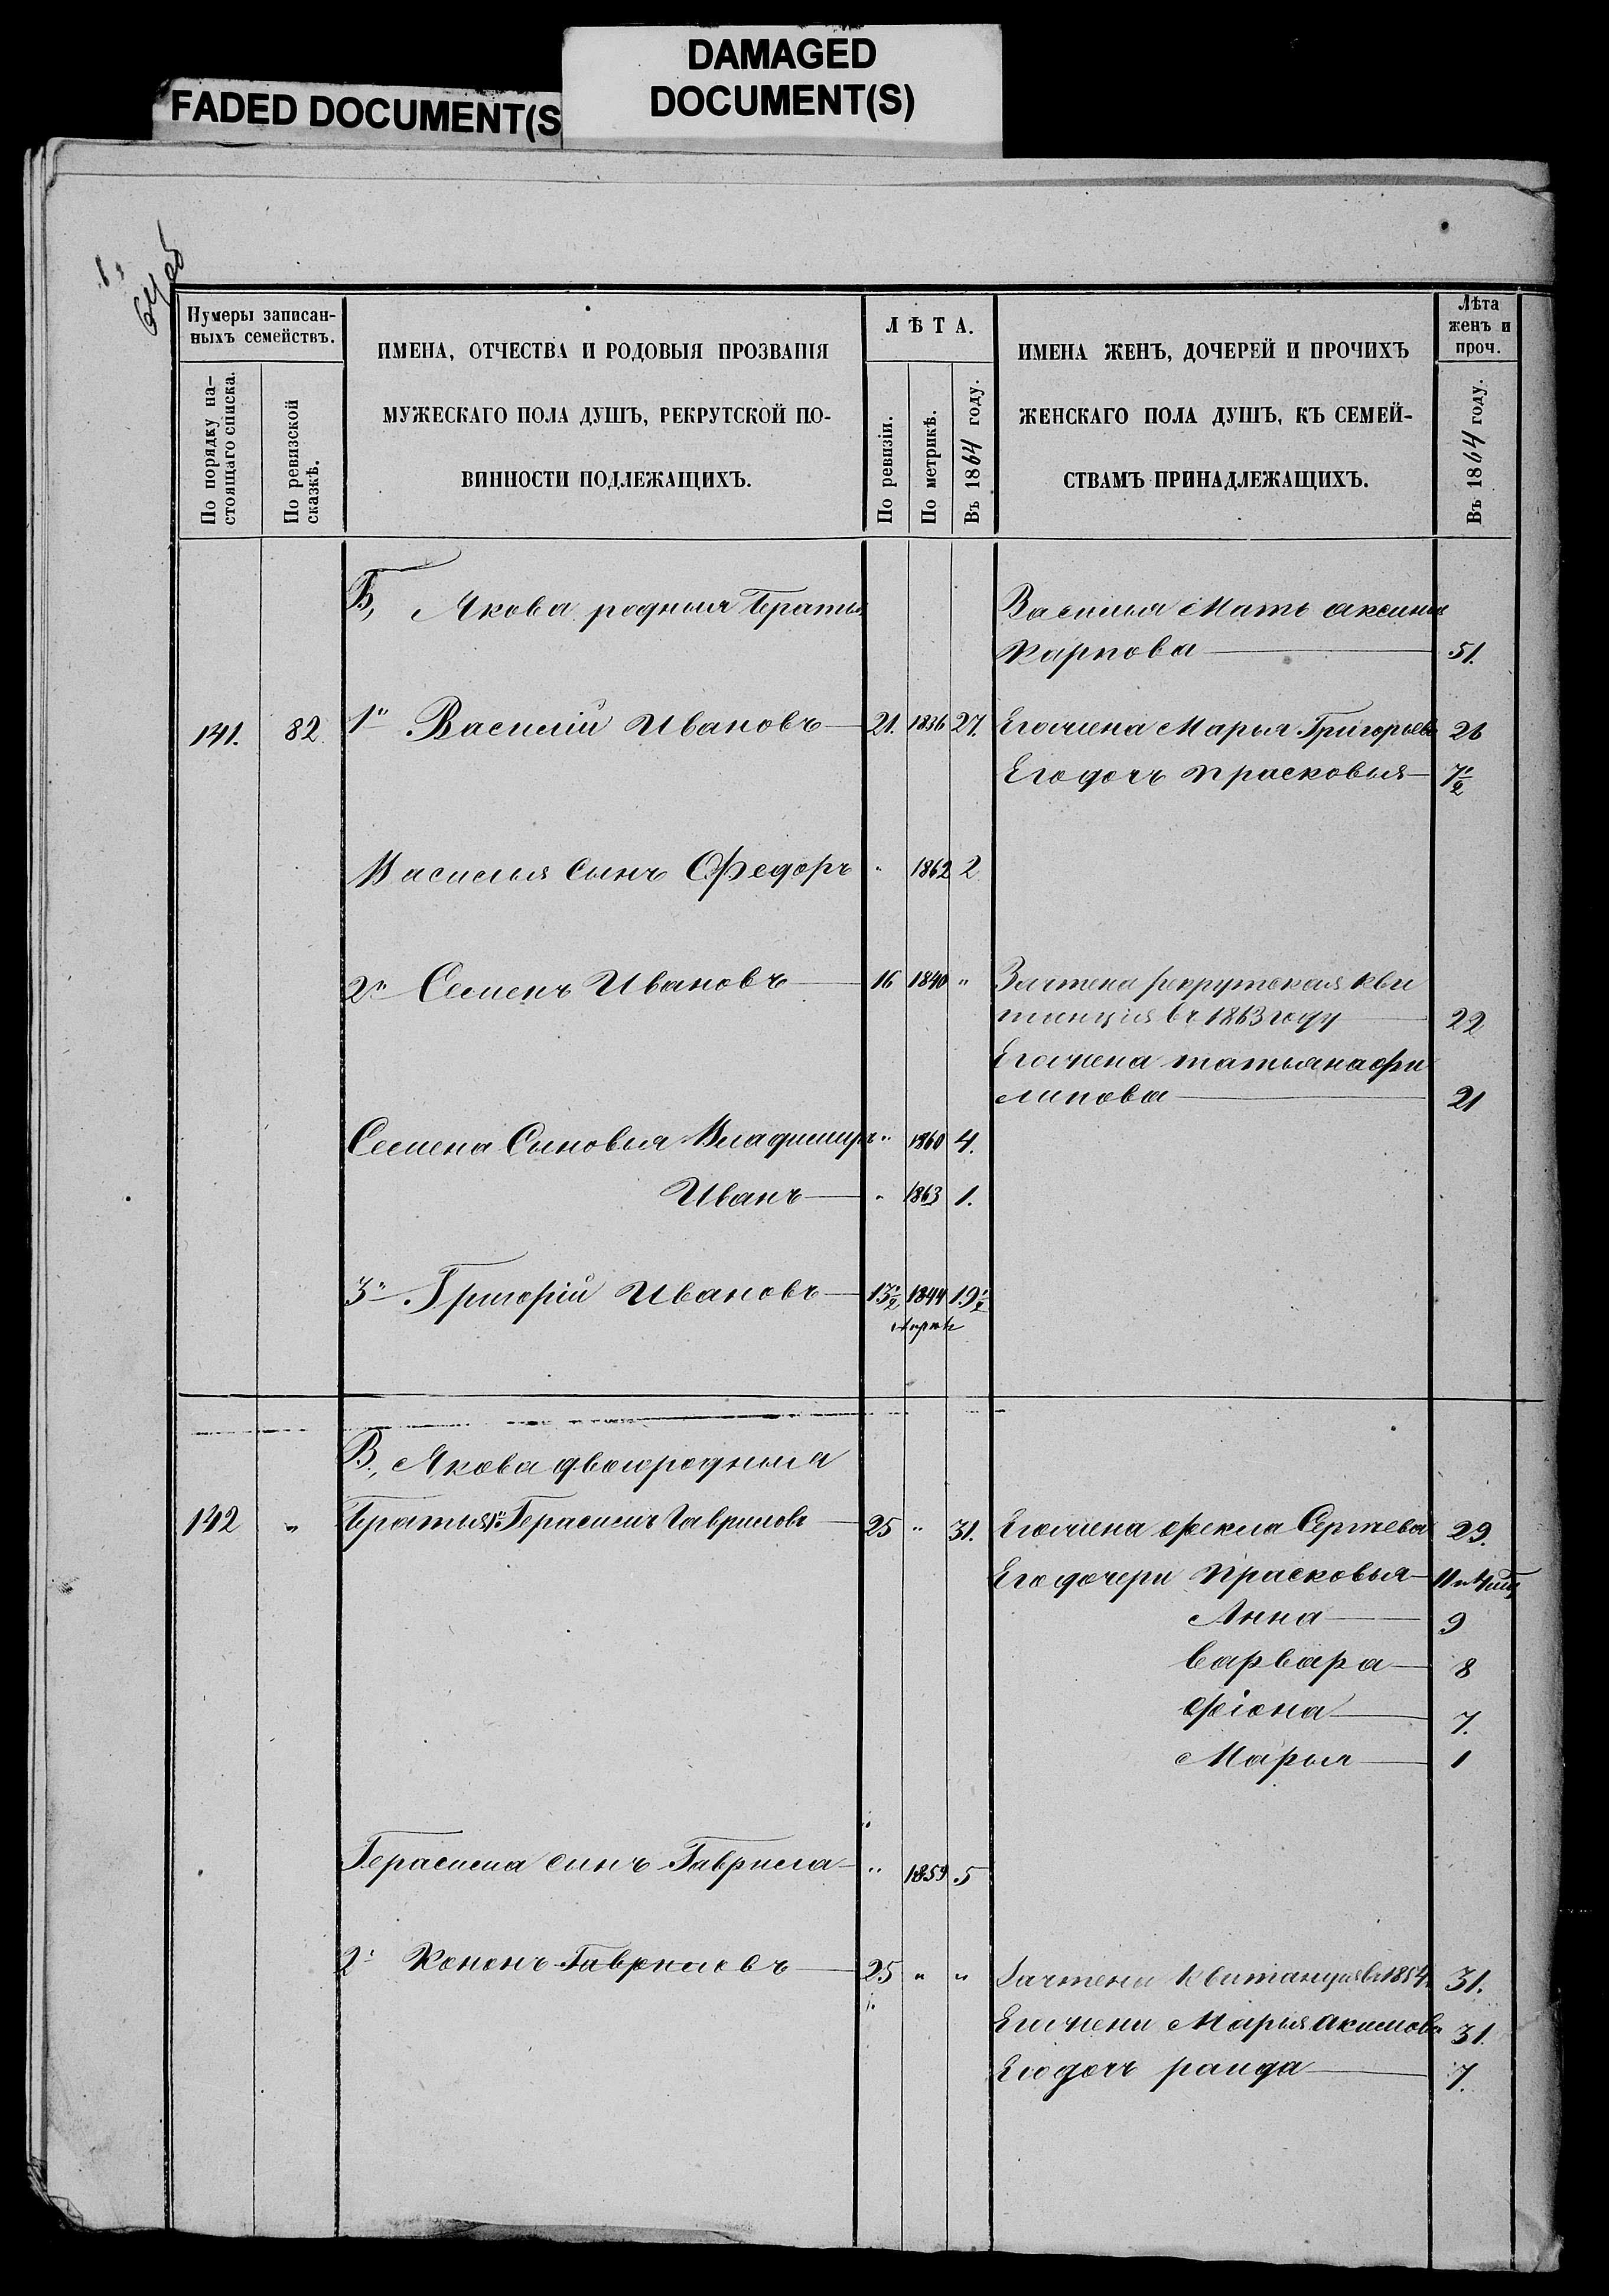 DAMAGED
DOCUMENT(S)
FADED DOCUMENT(S
64 об
Нумеры записан-
ныхъ семействъ.
По порядку на-
стоящаго списка.
По ревизской
сказкѣ.
ИМЕНА, ОТЧЕСТВА И РОДОВЫЯ ПРОЗВАНІЯ
МУЖЕСКАГО ПОЛА ДУШЪ, РЕКРУТСКОЙ ПО-
ВИННОСТИ ПОДЛЕЖАЩИХЪ.
ЛѢТА.
По ревизіи.
По метрикѣ.
Въ 1864 году.
ИМЕНА ЖЕНЪ, ДОЧЕРЕЙ И ПРОЧИХЪ
ЖЕНСКАГО ПОЛА ДУШЪ, КЪ СЕМЕЙ-
СТВАМЪ ПРИНАДЛЕЖАЩИХЪ.
Лѣта
женъ и
проч.
Въ 1864 году.
Б, Якова родныя братья Василья Мать аксинья
Карпова 51.
141. 82 1" Василій Ивановъ 21. 1836 27. Егожена Марья Григорьева 26
Его дочь прасковья 7 1/2
Василья сынъ Федоръ " 1862 2
2" Семенъ Ивановъ 16 1840 " Зачтена рекрутская кви
танція въ 1863 году 22
Егожена татьяна фи
липова 21
Семена Сыновья Владимиръ " 1860 4.
Иванъ " 1863 1.
3" Григорій Ивановъ 13 1/2 1844 19 1/2
Апрѣль
В., Якова двоюродныя
142 " братья 1" Герасимъ Гавриловъ 25 " 31. Егожена фекла Сергѣева 29.
Его дочери прасковья 11 и 4 мц
Анна 9
варвара 8
фіона 7.
Марья 1
Герасима сынъ Гаврила " 1859 5
2" Кононъ Гавриловъ 25 " " Зачтена квитанція въ 1854 31.
Егожена Марья акимова 31.
Егодочь раида 7.